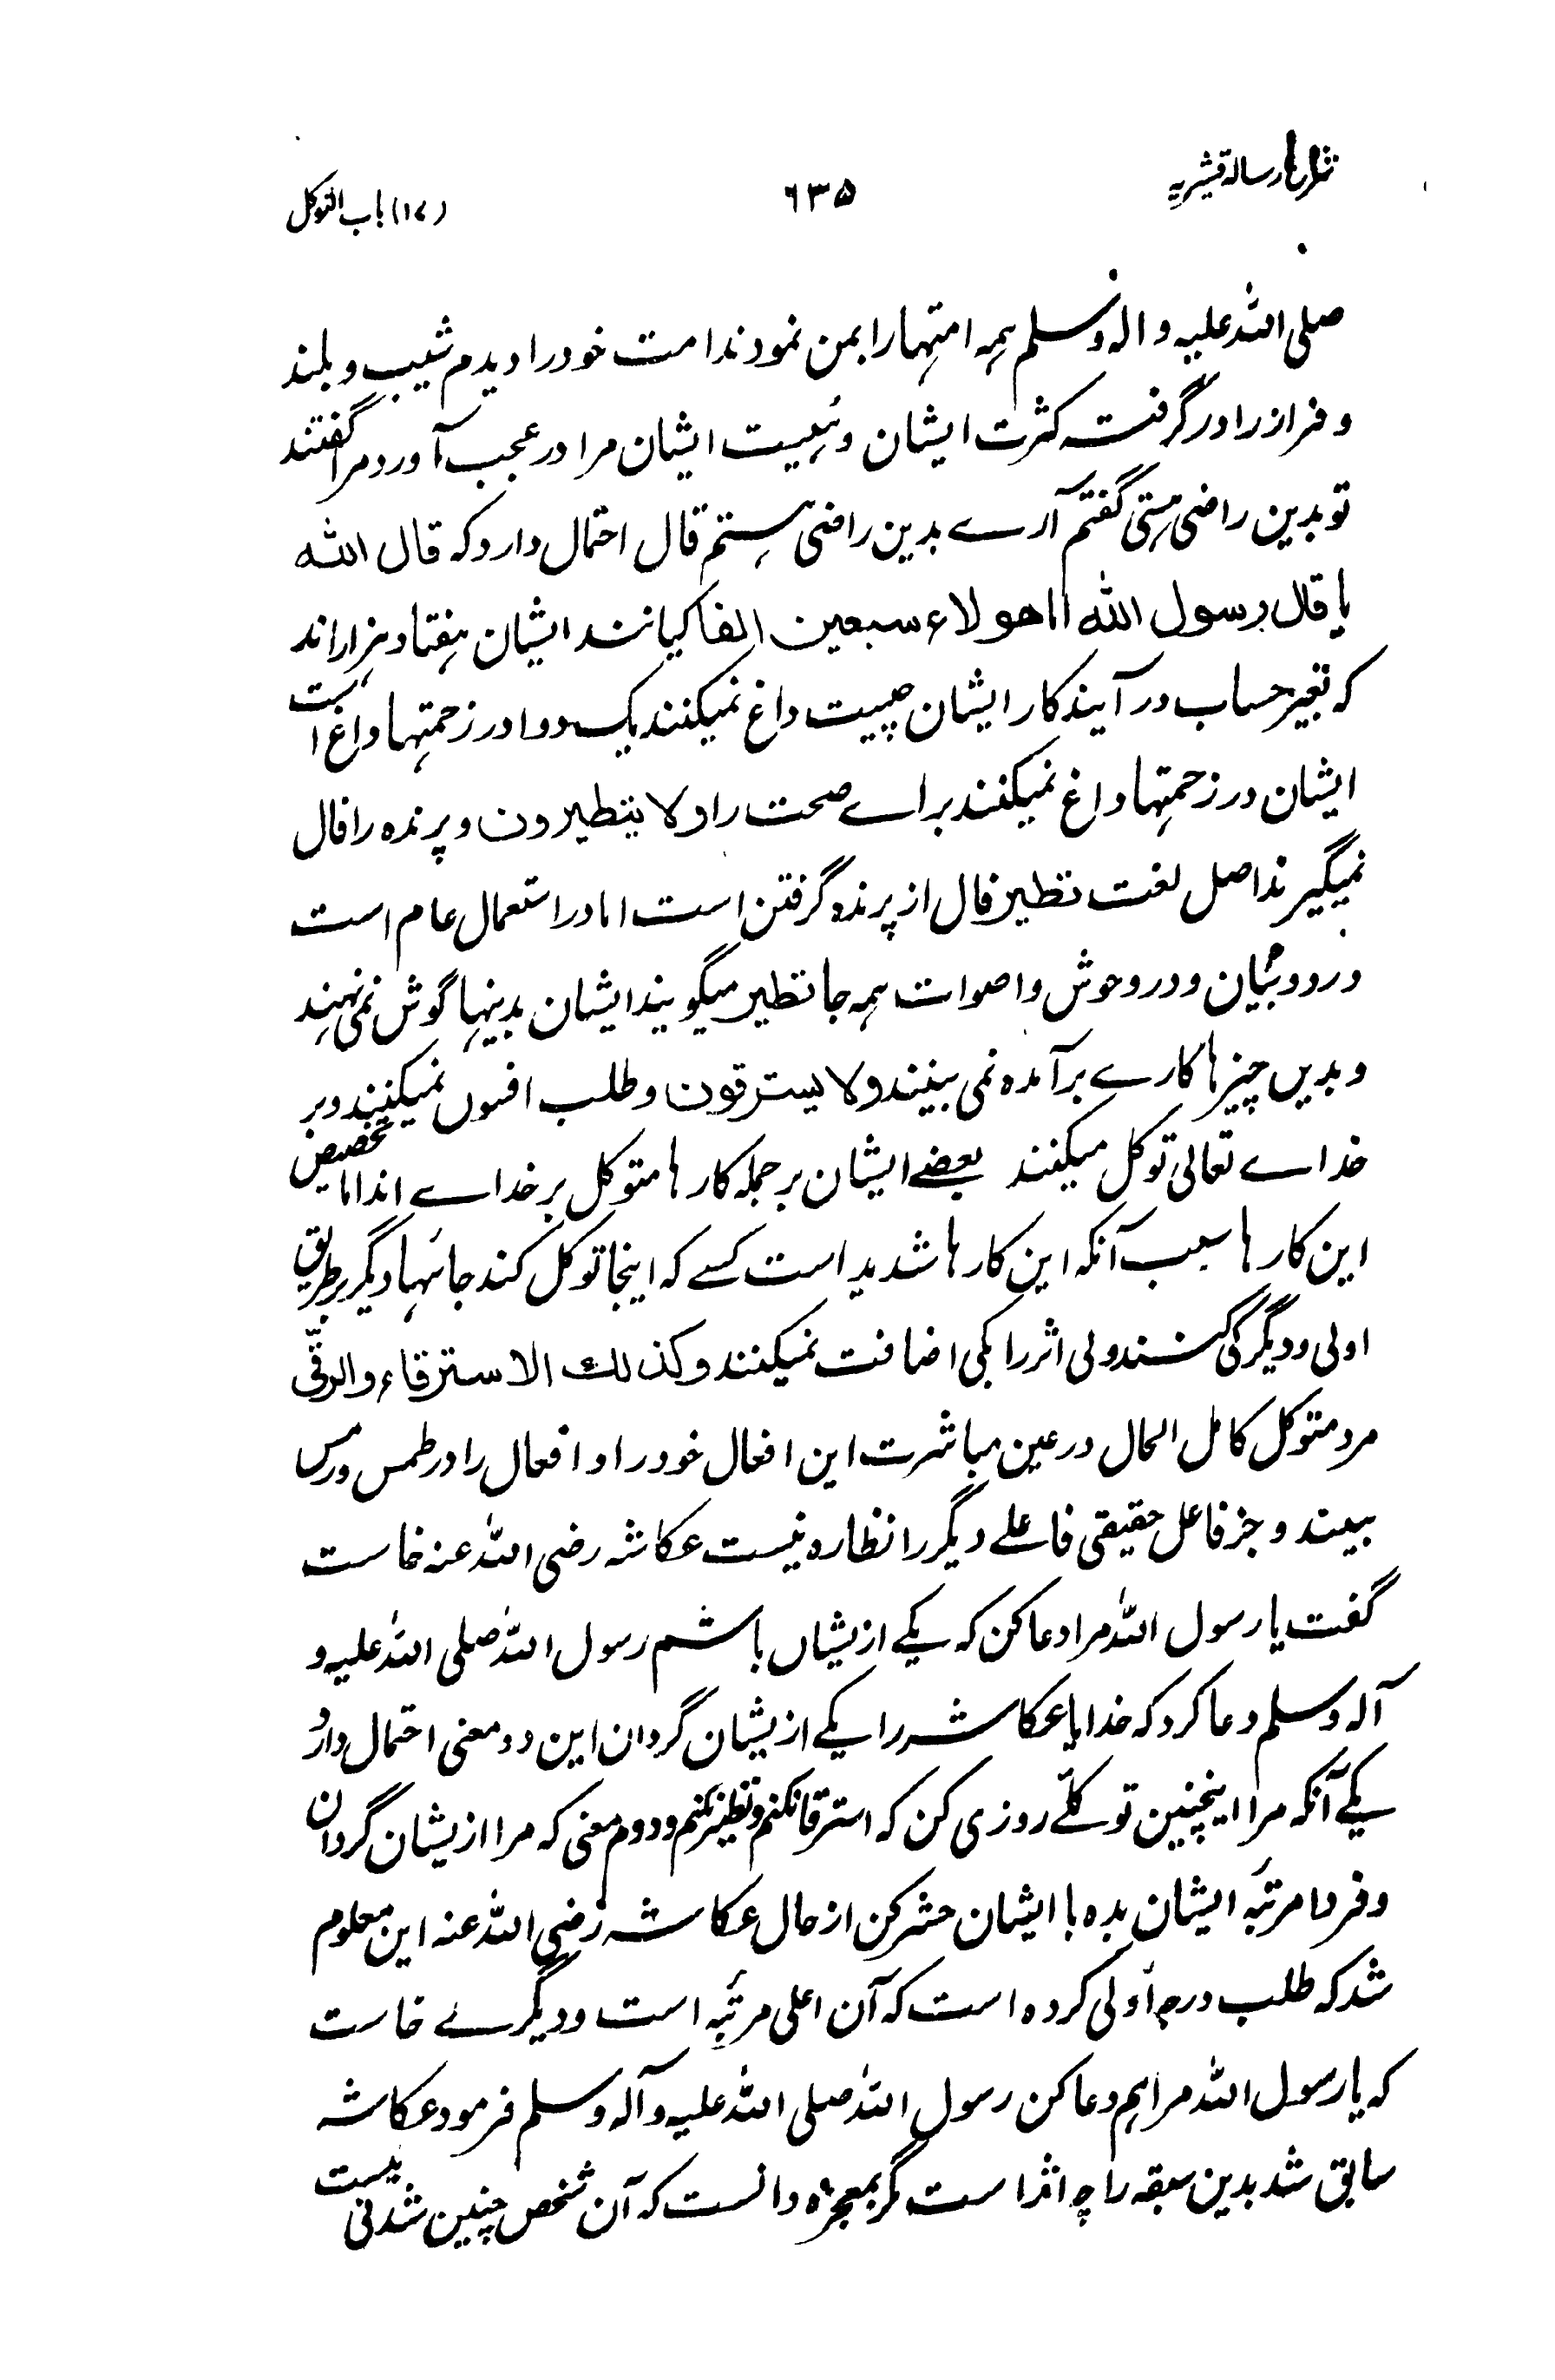 شرح رسالہ قشیریہ
۶۳۵
(۱۷) باب التوکل
صلی اللہ علیہ و الہ وسلم ہمہ امتہارا بمن نمودند امت خود را دیدم شیب و بلند
و فراز را در گرفتہ کثرت ایشان و ہیبت ایشان مرا در عجب آورد مرا گفتند
تو بدین راضی ہستی گفتم آرے بدین راضی ہستم قال احتمال دارد کہ قال اللہ
یا قال رسول اللہ اما هولاء سبعین الفا کیانند ایشان ہفتاد ہزار اند
کہ بغیر حساب در آیند کار ایشان چیست داغ نمیکنند یک دوا در زحمتہا داغ است
ایشان در زحمتہا داغ نمیکنند براے صحت را ولا یتطیرون و پرندہ را فال
نمیگیرند اصل لغت تطیر فال از پرندہ گرفتن است اما در استعمال عام است
در و در وحوش و اصوات ہمہ جا تطیر میگویند ایشان بدینہا گوش نمی نہند
و بدیں چیزہا کارے برآمدہ نمی بینند ولا یسترقون و طلب افسوں نمیکنند و بر
خداے تعالی توکل میکنند بعضے ایشان بر جملہ کارہا متوکل بر خداے اند اما تخصیص
این کارہا سبب آنکہ این کارہا شدید است کسے کہ اینجا توکل کند جائہا دیگر بر طریق
اولی و دیگر کی کنند ولی اثر را بکی اضافت نمیکنند وکذلك الاسترقاء والرقی
مرد متوکل کامل الحال در عین مباشرت این افعال خود را و افعال را در طمس و رمس
بیند و جز فاعل حقیقی فاعلے دیگر را نظارہ نیست عکاشہ رضی اللہ عنہ خاست
گفت یا رسول اللہ مرا دعا کن کہ یکے ازیشاں باشم رسول اللہ صلی اللہ علیہ و
آلہ وسلم دعا کرد کہ خدایا عکاشہ را یکے ازیشان گردان این دو معنی احتمال دارد
یکے آنکہ مرا اینچنین توکلے روزی کن کہ استرقا نکنم و تطیر نکنم و دوم معنی کہ مرا ازیشان گردان
و فردا مرتبہ ایشان بدہ با ایشان حشر کن از حال عکاشہ رضی اللہ عنہ این معلوم
شد کہ طلب درجہ اولی کردہ است کہ آن اعلی مرتبہ است و دیگرے خاست
کہ یا رسول اللہ مرا ہم دعا کن رسول اللہ صلی اللہ علیہ و آلہ وسلم فرمود عکاشہ
سابق شد بدین سبقہ را چہ اثر است مگر بمعجزہ دانست کہ آن شخص چنین شدنی نیست